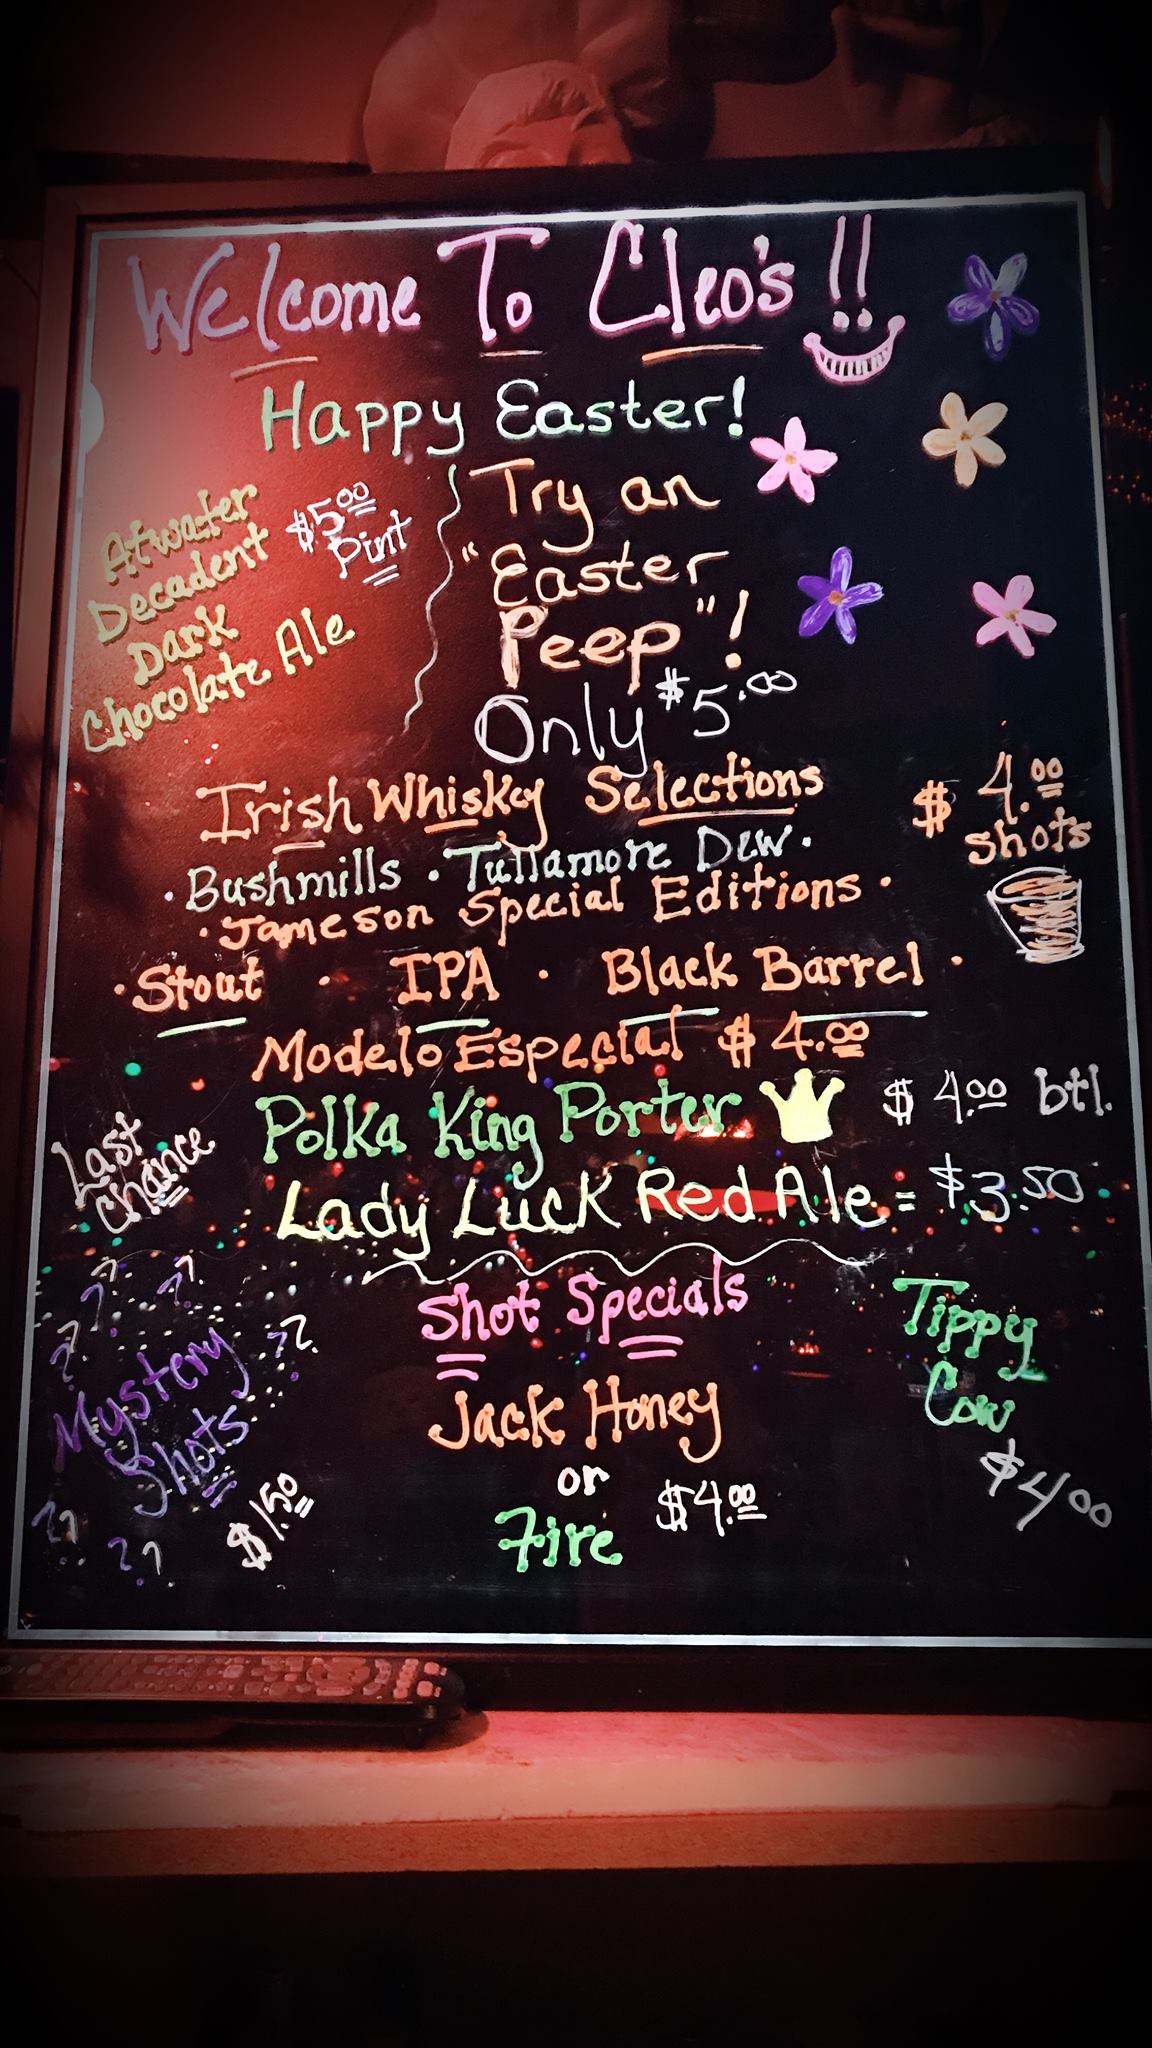 Welcome To Cleo's!!
Happy Easter!
Atwater
Decadent
Dark
Chocolate Ale
$5.00
Pint
Try an
"Easter
Peep"!
Only $5.00
Irish Whiskey Selections
$4.00
shots
·Bushmills ·Tullamore Dew·
·Jameson Special Editions·
·Stout · IPA · Black Barrel·
Modelo Especial $4.00
Polka King Porter $4.00 btl.
Last
chance
Lady Luck Red Ale = $3.50
? ? ? ? ? ? ?
Mystery
Shots
$1.50
? ? ? ?
Shot Specials
Jack Honey
or
Fire
$4.00
Tippy
Cow
$4.00